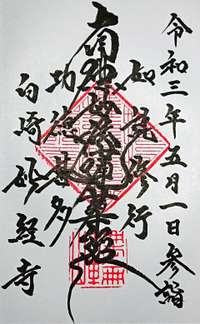 令和三年五月一日参詣
如説修行
南無妙法蓮華経
功徳甚多
白崎妙経寺